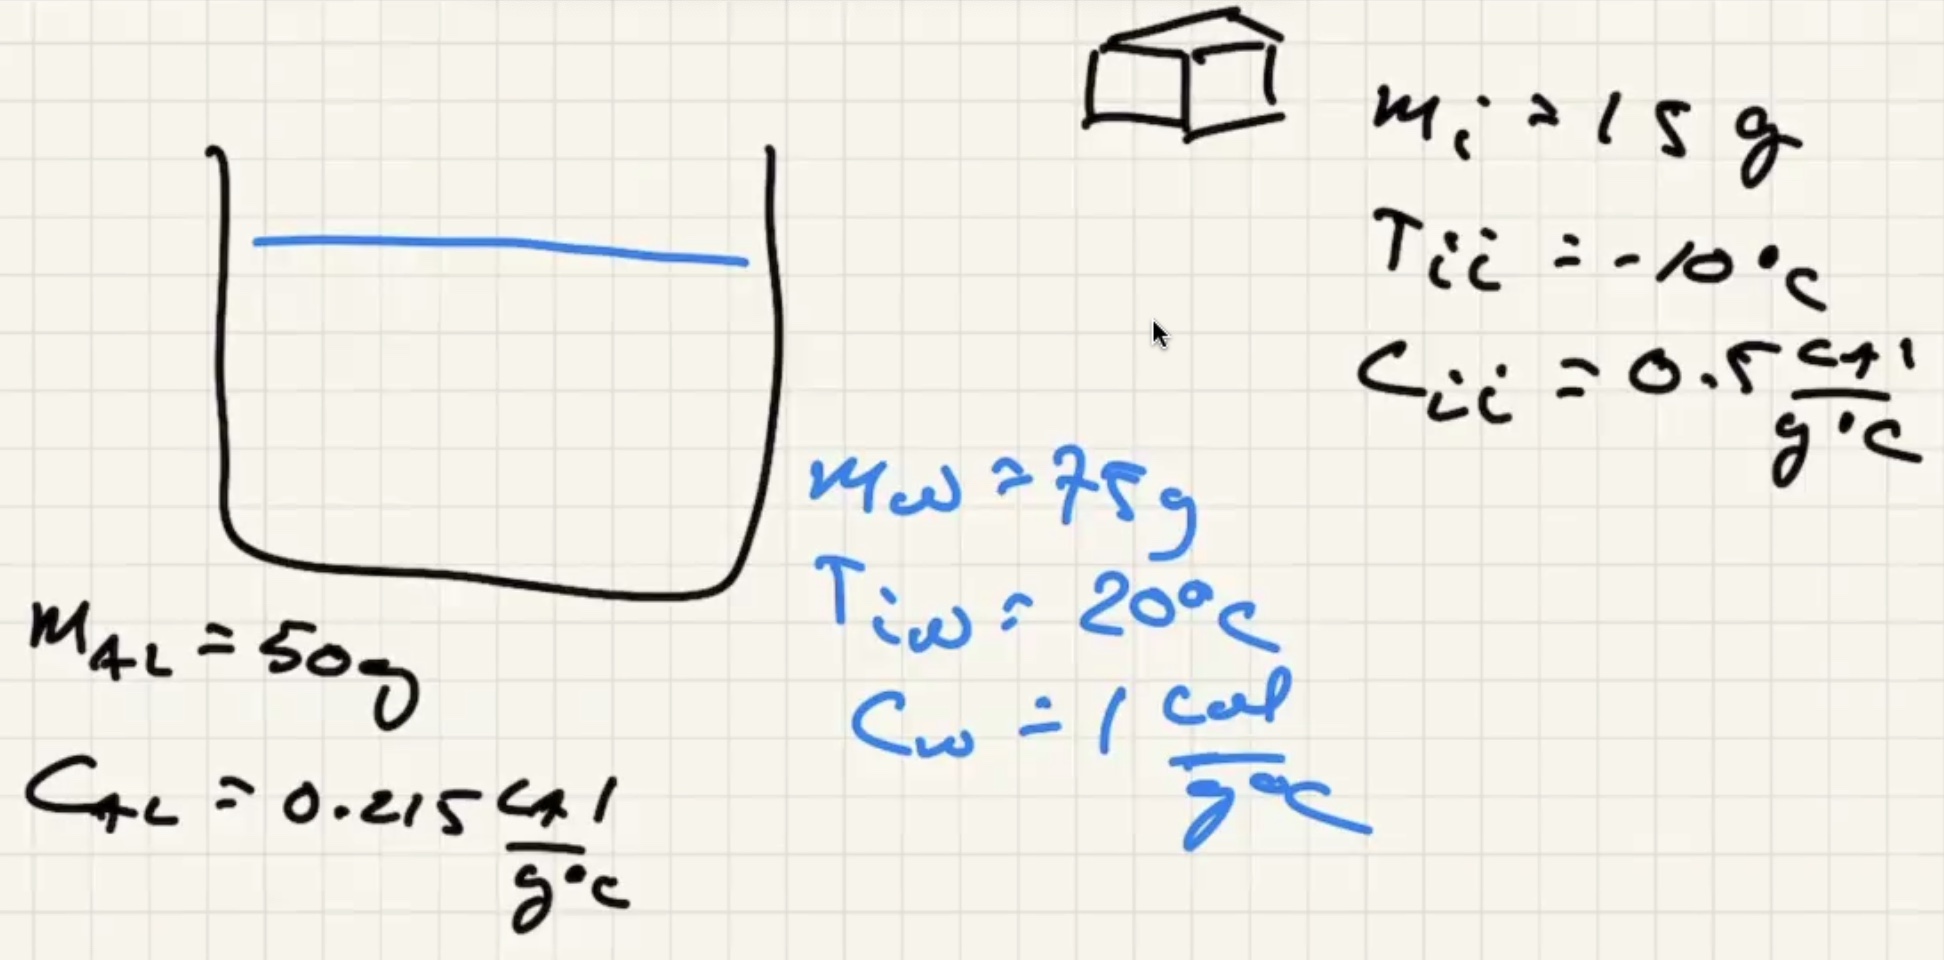 mi = 15 g
Tii = -10°C
Cii = 0.5 cal/g°C
mw = 75g
Tiw = 20°C
Cw = 1 cal/g°C
mAL = 50g
CAL = 0.215 cal/g°C